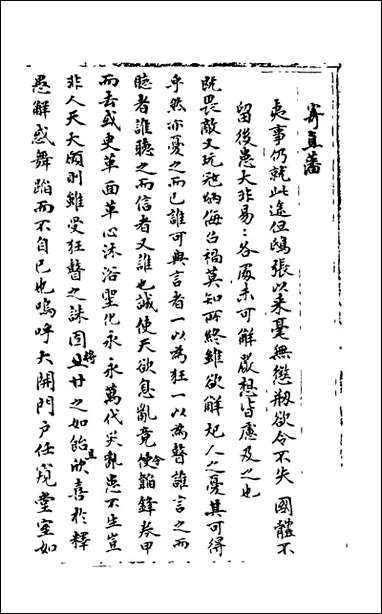 寄直藩
夷事仍就此途但鴟張以來毫無懲刱欲令不失 國體不
留後患大非易〻各履未可解嚴想皆慮及之也
既畏敵又玩冦納侮召禍莫知所終雖欲解杞人之憂其可得
乎然亦憂之而已誰可與言者一以為狂一以為瞽誰言之而
聽者誰聽之而信者又誰也誠使天欲息亂竟使令韜鋒卷甲
而去或更革面革心沐浴聖化永永萬代尖亂患不生豈
非人天大頗則雖受狂瞽之誅固且將甘之如飴欣且喜於釋
愚解惑舞蹈而不自已也嗚呼大開門戶任窺堂室如